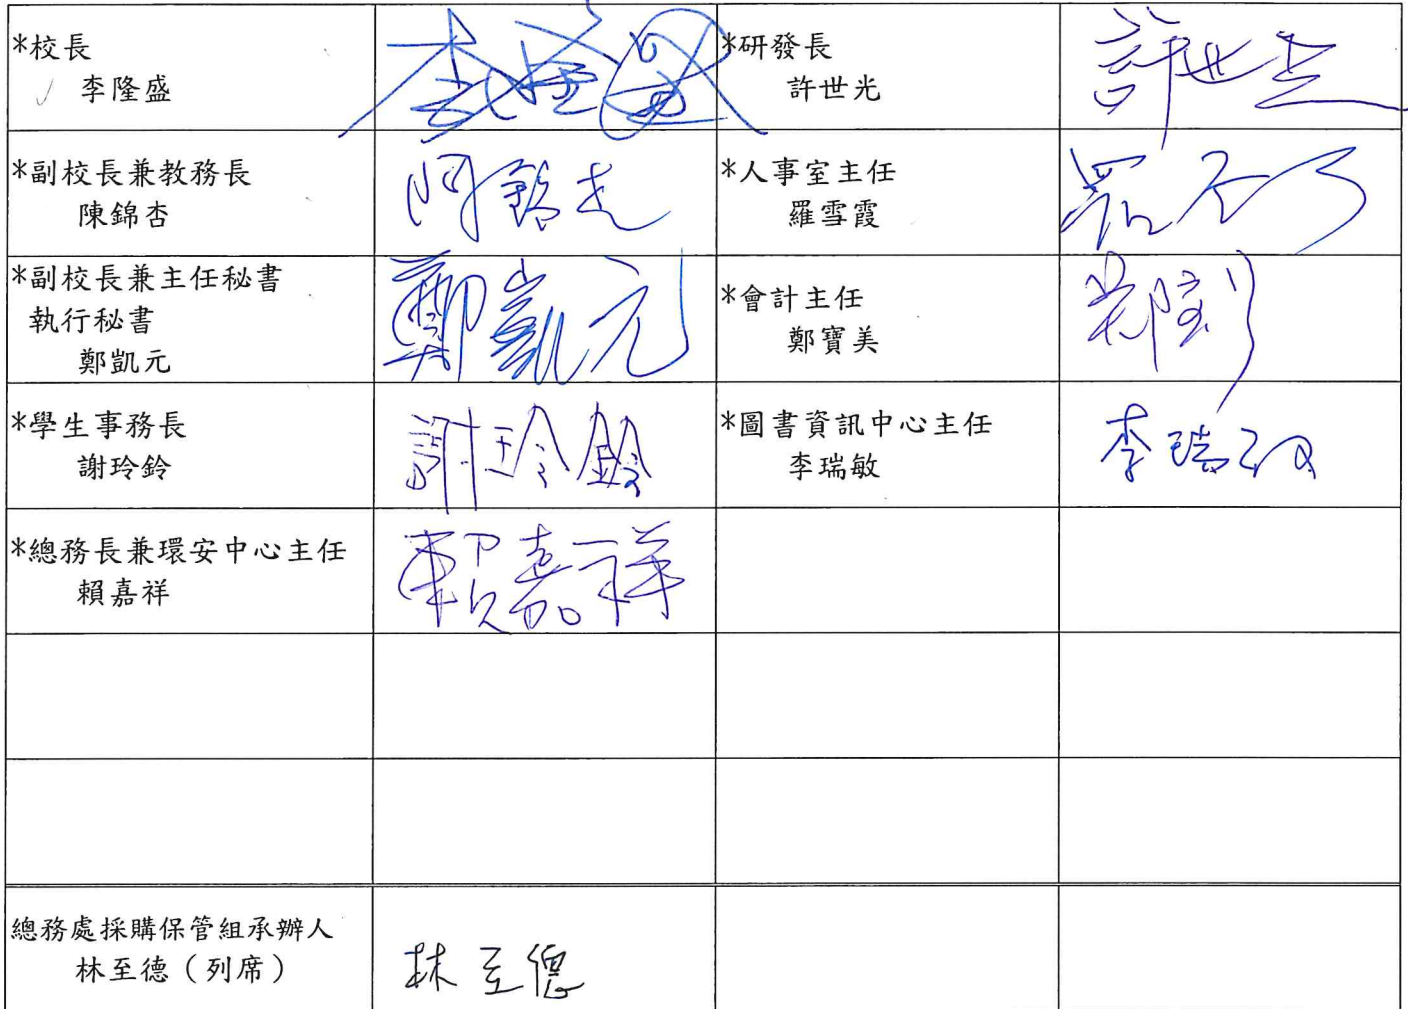 *校長
李隆盛
李隆盛
*研發長
許世光
許世光
*副校長兼教務長
陳錦杏
*人事室主任
羅雪霞
*副校長兼主任秘書
執行秘書
鄭凱元
鄭凱元
*會計主任
鄭寶美
*學生事務長
謝玲鈴
謝玲鈴
*圖書資訊中心主任
李瑞敏
李瑞敏
*總務長兼環安中心主任
賴嘉祥
賴嘉祥
總務處採購保管組承辦人
林至德（列席）
林至德